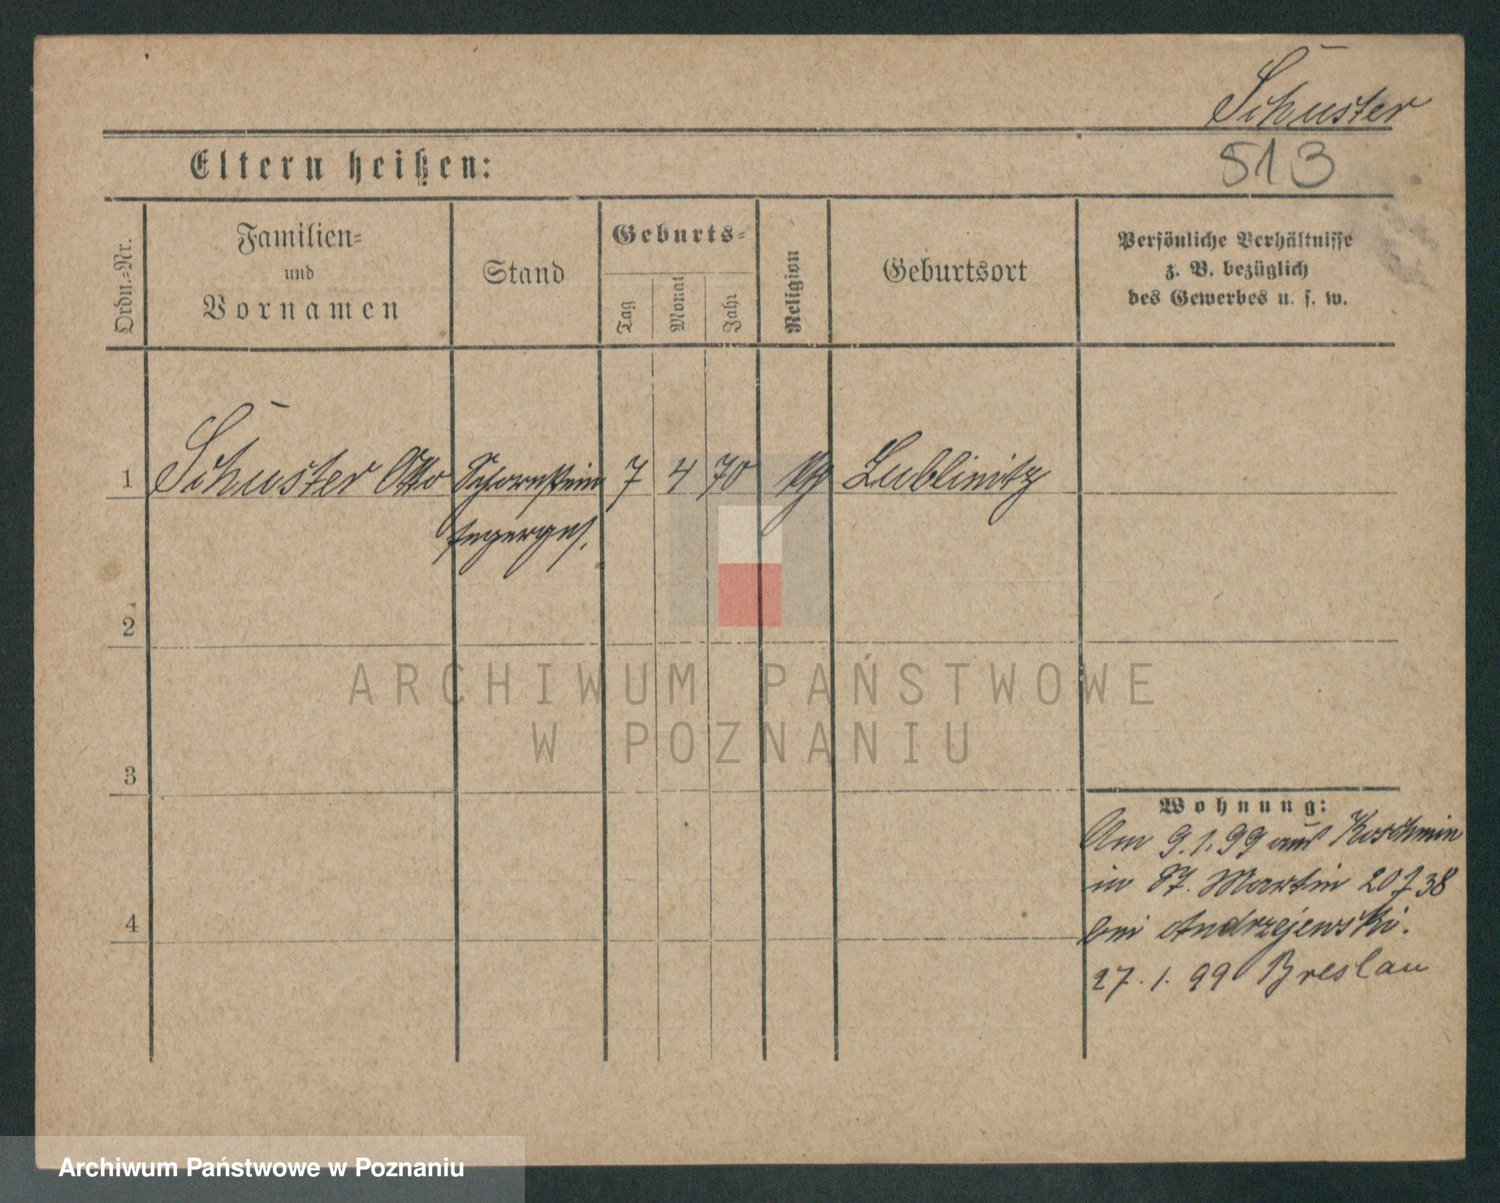 Schuster
513
Eltern heißen:
Ordn.-Nr.
Familien-
und
Vornamen
Stand
Geburts-
Tag
Monat
Jahr
Religion
Geburtsort
Persönliche Verhältnisse
z. B. bezüglich
des Gewerbes u. s. w.
1 Schuster Otto Schornstein 7 4 70 Lublinitz
fegerges.
2
3
4
Wohnung:
Am 9.1.99 aus Koschmin
in St. Martin 20 38
bei Andrzejewski.
27.1.99 Breslau
ARCHIWUM PAŃSTWOWE
W POZNANIU
Archiwum Państwowe w Poznaniu